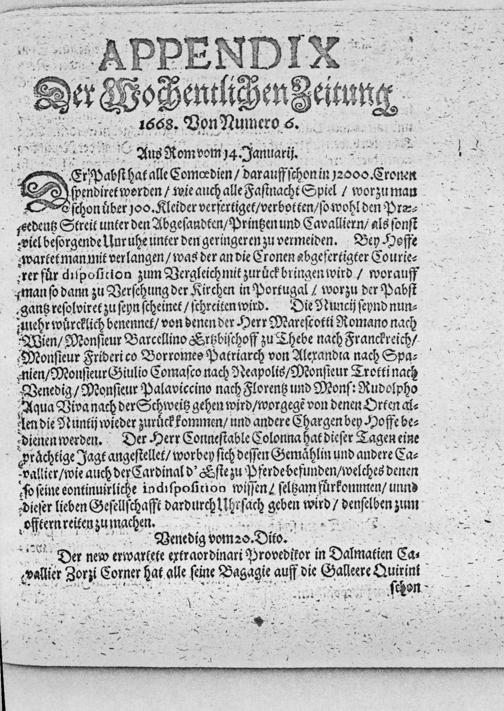 APPENDIX
Der Wochentlichen Zeitung
1668. Von Numero 6.
Aus Rom vom 14. Januarij.
DEr Pabst hat alle Comœdien / darauff schon in 12000. Cronen
spendiret worden / wie auch alle Fastnacht Spiel / worzu man
schon über 100. Kleider verfertiget/verbotten/so wohl den Præ-
cedentz Streit unter den Abgesandten/Printzen und Cavalliern/ als sonst
viel besorgende Unruhe unter den geringeren zu vermeiden. Bey Hoffe
wartet man mit verlangen/ was der an die Cronen abgefertigter Courie-
rer für disposition zum Vergleich mit zurück bringen wird / worauff
man so dann zu Versehung der Kirchen in Portugal / worzu der Pabst
gantz resolviret zu seyn scheinet/ schreiten wird. Die Nuncij seynd nun-
mehr würcklich benennet/ von denen der Herr Marescotti Romano nach
Wien/ Monsieur Barcellino Ertzbischoff zu Thebe nach Franckreich/
Monsieur Frideri co Borromeo Patriarch von Alexandia nach Spa-
nien/Monsieur Giulio Comasco nach Neapolis/Monsieur Trotti nach
Venedig/ Monsieur Palaviccino nach Florentz und Mons: Rudolpho
Aqua Viva nach der Schweitz gehen wird/worgegē von denen Orten al-
len die Nuntij wieder zurück kommen/ und andere Chargen bey Hoffe be-
dienen werden. Der Herr Connestable Colonna hat dieser Tagen eine
prächtige Jagt angestellet/ worbey sich dessen Gemählin und andere Ca-
vallier/wie auch der Cardinal d' Este zu Pferde befunden/welches denen
so seine continuirliche indisposition wissen/ seltzam fürkommen/ unnd
dieser lieben Gesellschafft dardurch Uhrsach geben wird/ denselben zum
offtern reiten zu machen.
Venedig vom 20. Dito.
Der new erwartete extraordinari Proveditor in Dalmatien Ca-
vallier Zorzi Corner hat alle seine Bagagie auff die Galleere Quirini
schon